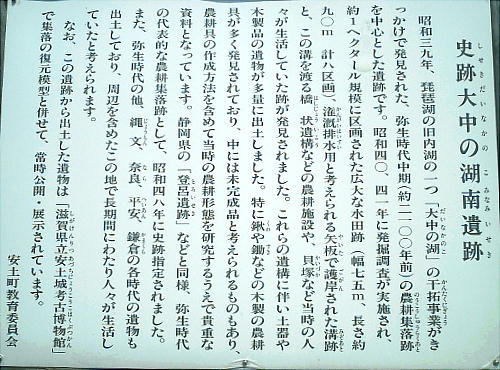 史跡大中の湖南遺跡
昭和三九年、琵琶湖の旧内湖の一つ「大中の湖」の干拓事業がき
っかけで発見された、弥生時代中期(約二一〇〇年前)の農耕集落跡
を中心とした遺跡です。昭和四〇、四一年に発掘調査が実施され、
約1ヘクタール規模に区画された広大な水田跡(一幅七五m、長さ約
九〇m 計八区画)、潅漑排水用と考えられる矢板で護岸された溝跡
と、この溝を渡る橋、状遺構などの農耕施設や、貝塚など当時の人
々が生活していた跡が発見されました。これらの遺構に伴い土器や
木製品の遺物が多量に出土しました。特に鍬や鋤などの木製の農耕
具が多く発見されており、中には未完成品と考えられるものもあり、
農耕具の作成方法を含めて当時の農耕形態を研究するうえで貴重な
資料となっています。静岡県の「登呂遺跡」などと同様、弥生時代
の代表的な農耕集落跡として、昭和四八年に史跡指定されました。
また、弥生時代の他、縄文、奈良、平安、鎌倉の各時代の遺物も
出土しており、周辺を含めたこの地で長期間にわたり人々が生活し
ていたと考えられます。
なお、この遺跡から出土した遺物は「滋賀県立安土城考古博物館」
で集落の復元模型と併せて、常時公開・展示されています。
安土町教育委員会